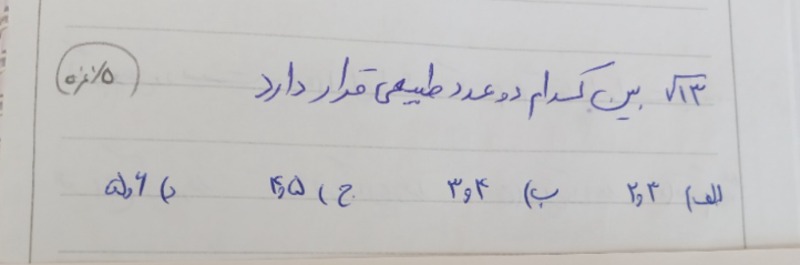 √۱۳ بین کدام دو عدد طبیعی قرار دارد
الف) ۲و۳ ب) ۳و۴ ج) ۴و۵ د) ۵و۶